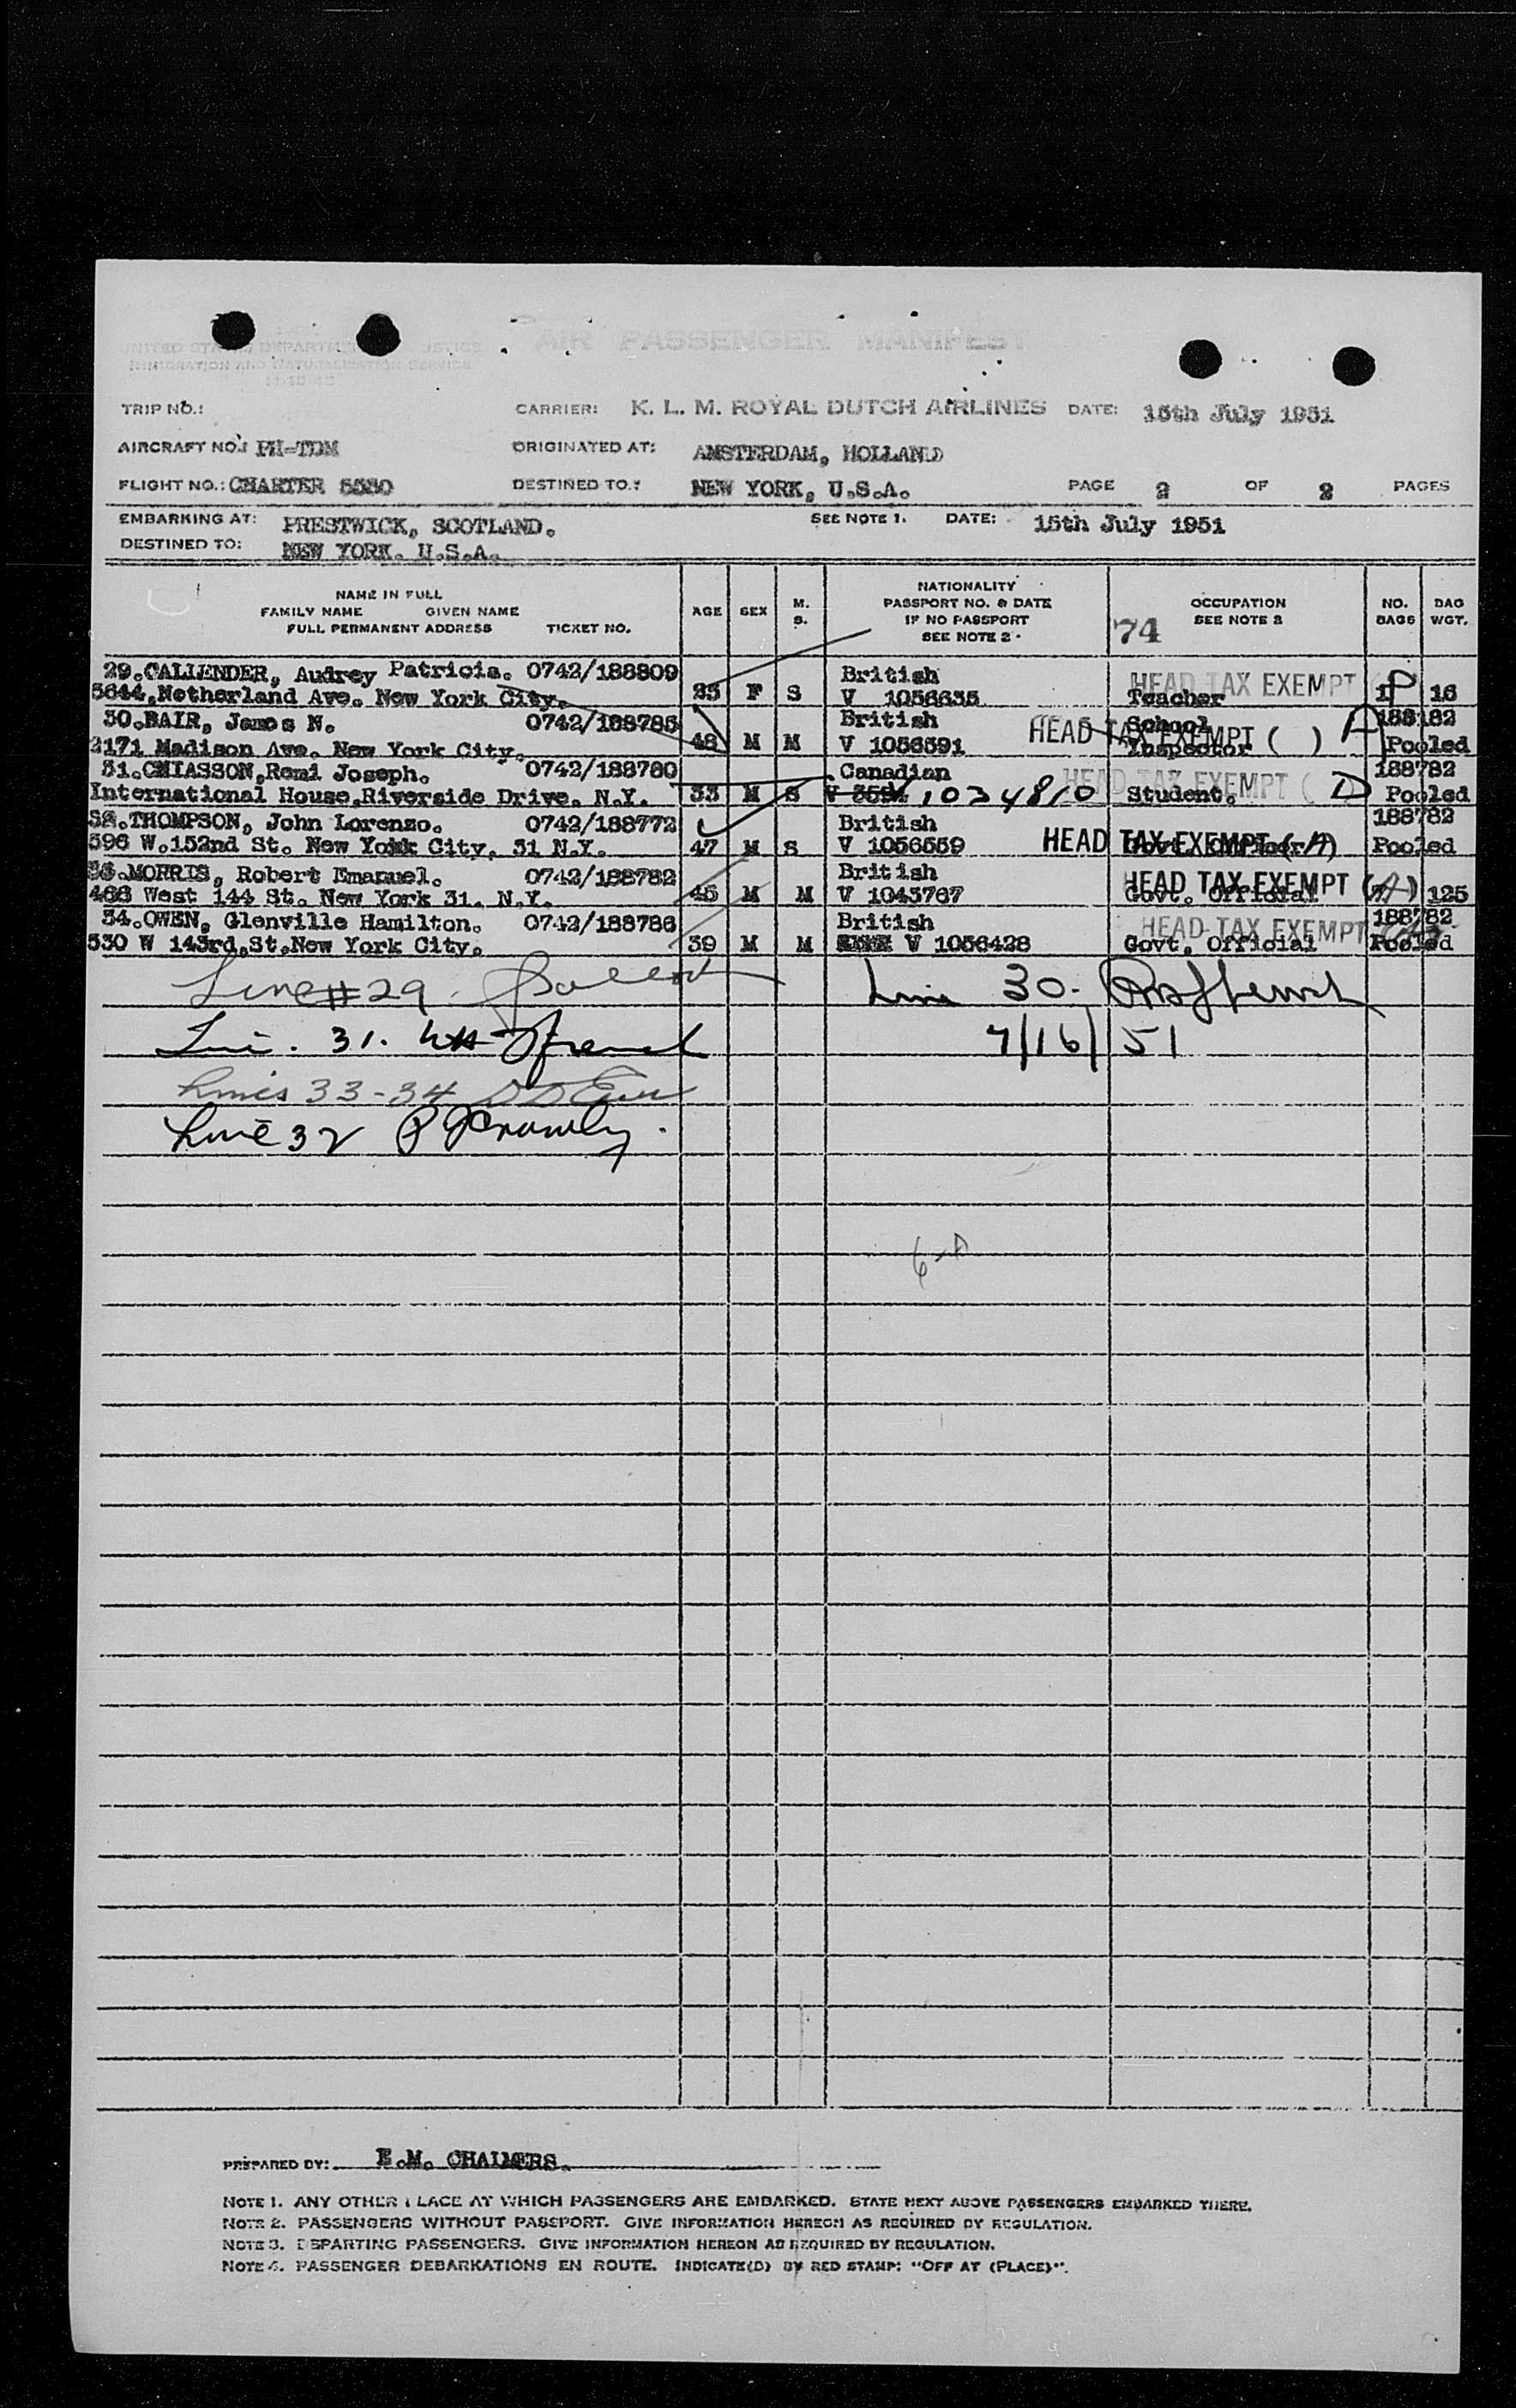 UNITED STATES DEPARTMENT OF JUSTICE
AIR PASSENGER MANIFEST
IMMIGRATION AND NATURALIZATION SERVICE
TRIP NO.: CARRIER: K. L. M. ROYAL DUTCH AIRLINES DATE: 15th July 1951
AIRCRAFT NO.: PH-TDM ORIGINATED AT: AMSTERDAM, HOLLAND
FLIGHT NO.: CHARTER 5550 DESTINED TO.: NEW YORK, U.S.A. PAGE 2 OF 2 PAGES
EMBARKING AT: PRESTWICK, SCOTLAND. SEE NOTE 1. DATE: 15th July 1951
DESTINED TO: NEW YORK. U.S.A.
NAME IN FULL
FAMILY NAME GIVEN NAME
FULL PERMANENT ADDRESS TICKET NO.
AGE SEX M. S.
NATIONALITY
PASSPORT NO. & DATE
IF NO PASSPORT
SEE NOTE 2
OCCUPATION
SEE NOTE 3
74
NO. BAGS BAG WGT.
29.CALLENDER, Audrey Patricia. 0742/188809 British HEAD TAX EXEMPT
5644,Netherland Ave. New York City. 25 F S V 1056635 Teacher 1 P 16
30.BAIR, James N. 0742/188785 British School HEAD TAX EXEMPT ( ) A 188782
2171 Madison Ave. New York City. 48 M M V 1056591 Inspector Pooled
31.CHIASSON,Remi Joseph. 0742/188780 Canadian HEAD TAX EXEMPT ( D 188782
International House,Riverside Drive. N.Y. 33 M S V 1034810 Student. Pooled
32.THOMPSON, John Lorenzo. 0742/188772 British 188782
596 W.152nd St. New York City. 31 N.Y. 47 M S V 1056559 HEAD TAX EXEMPT (A) Pooled
33.MORRIS, Robert Emanuel. 0742/188782 British HEAD TAX EXEMPT (A)
466 West 144 St. New York 31. N.Y. 45 M M V 1043767 Govt. Official 125
34.OWEN, Glenville Hamilton. 0742/188786 British HEAD TAX EXEMPT 188782
530 W 143rd.St.New York City. 39 M M V 1056428 Govt. Official Pooled
Line #29. Line 30.
Line. 31. 7/16/51
Lines 33-34
Line 32
6-A
PREPARED BY: E.M. CHALMERS.
NOTE 1. ANY OTHER PLACE AT WHICH PASSENGERS ARE EMBARKED. STATE NEXT ABOVE PASSENGERS EMBARKED THERE.
NOTE 2. PASSENGERS WITHOUT PASSPORT. GIVE INFORMATION HEREON AS REQUIRED BY REGULATION.
NOTE 3. DEPARTING PASSENGERS. GIVE INFORMATION HEREON AS REQUIRED BY REGULATION.
NOTE 4. PASSENGER DEBARKATIONS EN ROUTE. INDICATE(D) BY RED STAMP: "OFF AT (PLACE)".